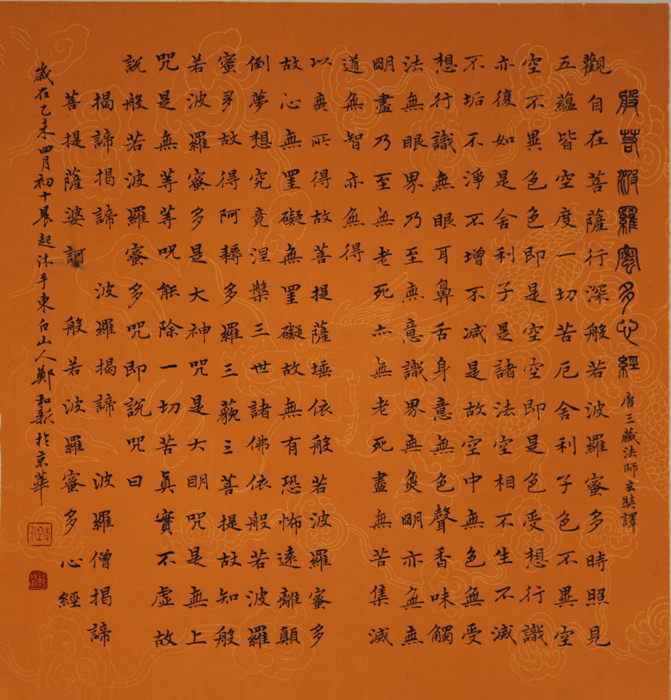 般若波羅蜜多心經 唐三藏法師玄奘譯
觀自在菩薩行深般若波羅蜜多時照見
五蘊皆空度一切苦厄舍利子色不異空
空不異色色即是空空即是色受想行識
亦復如是舍利子是諸法空相不生不滅
不垢不淨不增不減是故空中無色無受
想行識無眼耳鼻舌身意無色聲香味觸
法無眼界乃至無意識界無無明亦無無
明盡乃至無老死亦無老死盡無苦集滅
道無智亦無得
以無所得故菩提薩埵依般若波羅蜜多
故心無罣礙無罣礙故無有恐怖遠離顛
倒夢想究竟涅槃三世諸佛依般若波羅
蜜多故得阿耨多羅三藐三菩提故知般
若波羅蜜多是大神咒是大明咒是無上
咒是無等等咒能除一切苦真實不虛故
說般若波羅蜜多咒即說咒曰
揭諦揭諦 波羅揭諦 波羅僧揭諦
菩提薩婆訶 般若波羅蜜多心經
歲在乙未四月初十晨起沐手東白山人鄭和新於京華